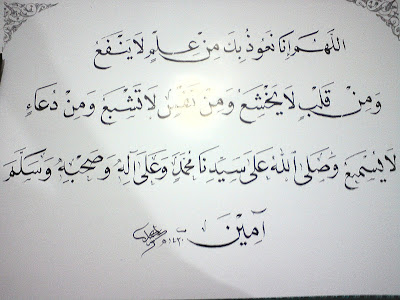 اللَّهُمَّ إِنَّا نَعُوذُ بِكَ مِنْ عِلْمٍ لَا يَنْفَعُ
وَمِنْ قَلْبٍ لَا يَخْشَعُ وَمِنْ نَفْسٍ لَا تَشْبَعُ وَمِنْ دُعَاءٍ
لَا يُسْمَعُ وَصَلَّى اللهُ عَلَى سَيِّدِنَا مُحَمَّدٍ وَعَلَى آلِهِ وَصَحْبِهِ وَسَلَّمَ
آمِيْنَ